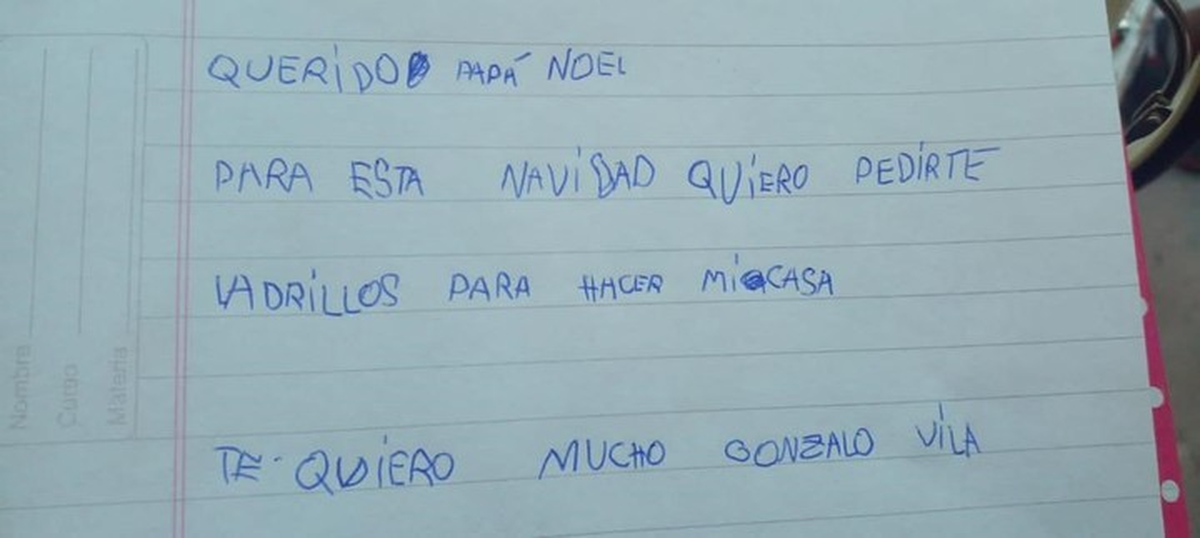 QUERIDO PAPÁ NOEL
PARA ESTA NAVIDAD QUIERO PEDIRTE
LADRILLOS PARA HACER MI CASA
TE QUIERO MUCHO GONZALO VILA
Nombre
Curso
Materia